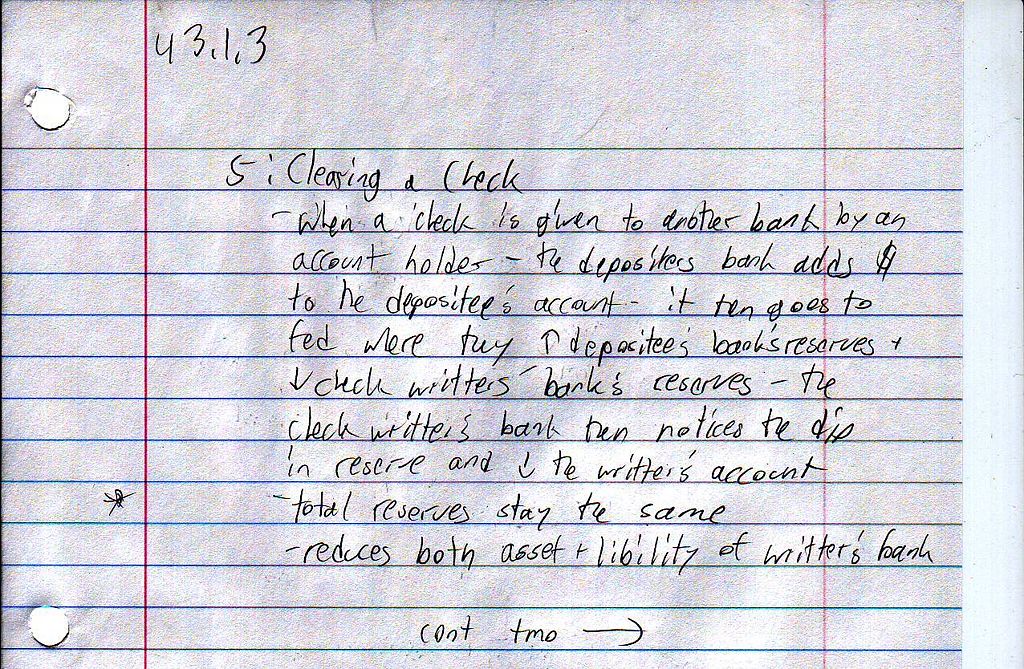 43.1.3
5: Clearing a Check
- When a check is given to another bank by an
account holder - the depositers bank adds $
to he depositee's account - it ten goes to
fed were they ↑ depositee's bank's reserves +
↓ check writters' bank's reserves - the
check writter's bank then notices the dip
in reserve and ↓ the writter's account
* - total reserves stay the same
- reduces both asset + libility of writter's bank
cont tmo →